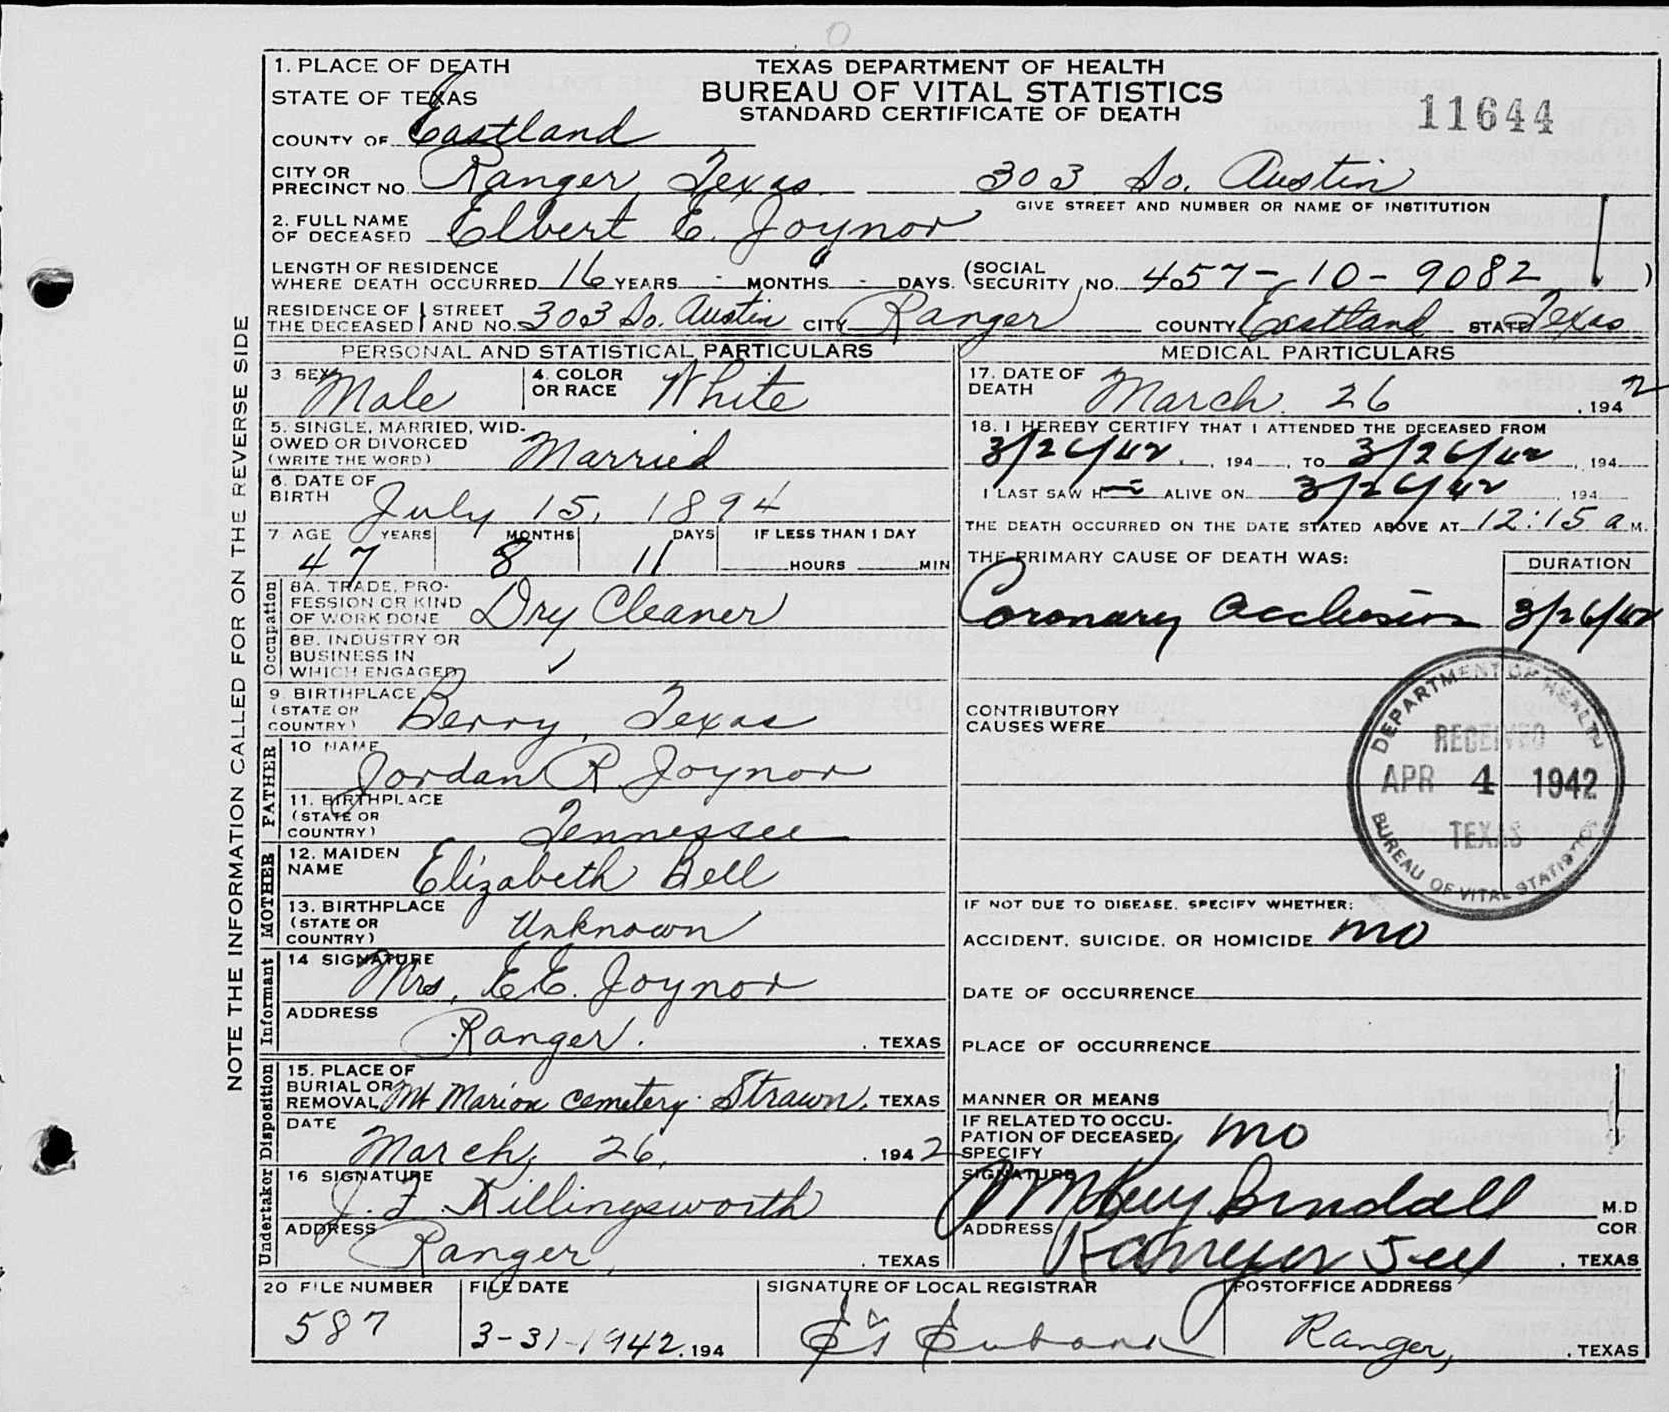 1. PLACE OF DEATH
STATE OF TEXAS
COUNTY OF Eastland
TEXAS DEPARTMENT OF HEALTH
BUREAU OF VITAL STATISTICS
STANDARD CERTIFICATE OF DEATH
11644
CITY OR PRECINCT NO. Ranger, Texas 303 So. Austin
GIVE STREET AND NUMBER OR NAME OF INSTITUTION
2. FULL NAME OF DECEASED Elbert E. Joynor
LENGTH OF RESIDENCE WHERE DEATH OCCURRED 16 YEARS - MONTHS - DAYS. (SOCIAL SECURITY NO. 457-10-9082 )
RESIDENCE OF THE DECEASED STREET AND NO. 303 So. Austin CITY Ranger COUNTY Eastland STATE Texas
PERSONAL AND STATISTICAL PARTICULARS
3 SEX Male
4. COLOR OR RACE White
5. SINGLE, MARRIED, WIDOWED OR DIVORCED (WRITE THE WORD) Married
6. DATE OF BIRTH July 15, 1894
7 AGE YEARS MONTHS DAYS IF LESS THAN 1 DAY
47 8 11 HOURS MIN
Occupation
8A. TRADE, PROFESSION OR KIND OF WORK DONE Dry Cleaner
8B. INDUSTRY OR BUSINESS IN WHICH ENGAGED ✓
9. BIRTHPLACE (STATE OR COUNTRY) Berry, Texas
FATHER
10 NAME Jordan R Joynor
11. BIRTHPLACE (STATE OR COUNTRY) Tennessee
MOTHER
12. MAIDEN NAME Elizabeth Bell
13. BIRTHPLACE (STATE OR COUNTRY) Unknown
Informant
14 SIGNATURE Mrs. E.E. Joynor
ADDRESS Ranger. , TEXAS
Disposition
15. PLACE OF BURIAL OR REMOVAL Mt Marion Cemetery Strawn, TEXAS
DATE March, 26, , 1942
Undertaker
16 SIGNATURE J. F. Killingsworth
ADDRESS Ranger, , TEXAS
MEDICAL PARTICULARS
17. DATE OF DEATH March. 26 , 1942
18. I HEREBY CERTIFY THAT I ATTENDED THE DECEASED FROM
3/26/42, 194 , TO 3/26/42, 194
I LAST SAW H ALIVE ON 3/26/42, 194
THE DEATH OCCURRED ON THE DATE STATED ABOVE AT 12:15 a M.
THE PRIMARY CAUSE OF DEATH WAS: DURATION
Coronary occlusion 3/26/42
CONTRIBUTORY CAUSES WERE
DEPARTMENT OF HEALTH
RECEIVED
APR 4 1942
TEXAS
BUREAU OF VITAL STATISTICS
IF NOT DUE TO DISEASE, SPECIFY WHETHER:
ACCIDENT, SUICIDE, OR HOMICIDE no
DATE OF OCCURRENCE
PLACE OF OCCURRENCE
MANNER OR MEANS
IF RELATED TO OCCUPATION OF DECEASED, SPECIFY no
SIGNATURE M.D
COR
ADDRESS Ranger Tex , TEXAS
20 FILE NUMBER 587
FILE DATE 3-31-1942, 194
SIGNATURE OF LOCAL REGISTRAR
POSTOFFICE ADDRESS Ranger, , TEXAS
NOTE THE INFORMATION CALLED FOR ON THE REVERSE SIDE